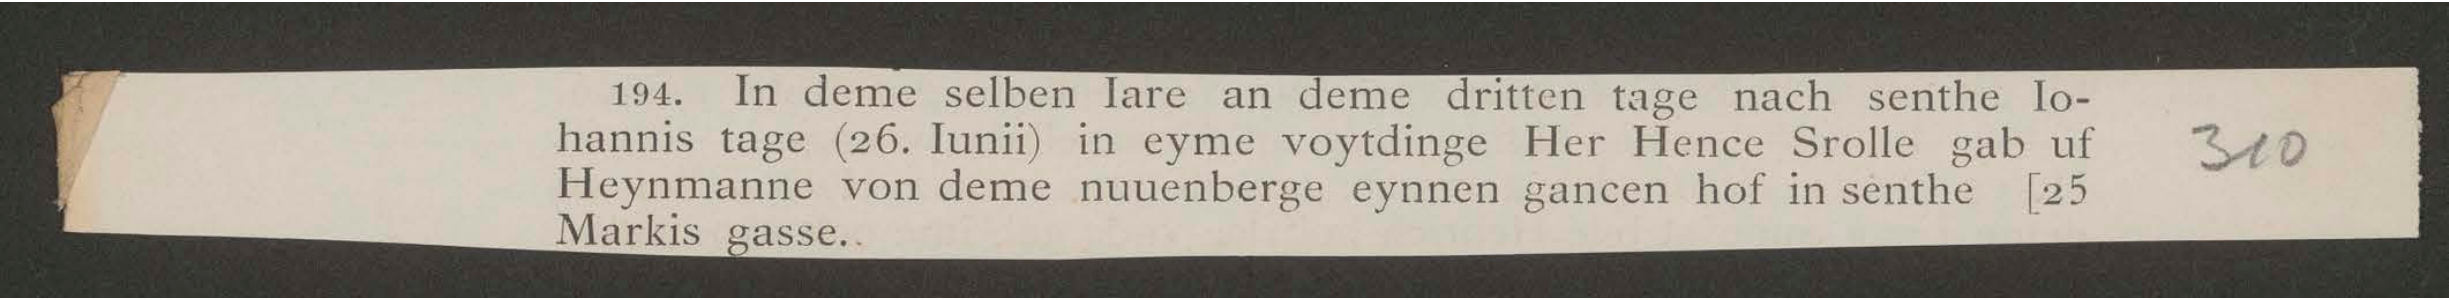 194. In deme selben Iare an deme dritten tage nach senthe Io-
hannis tage (26. Iunii) in eyme voytdinge Her Hence Srolle gab uf
Heynmanne von deme nuuenberge eynnen gancen hof in senthe [25
Markis gasse..
310